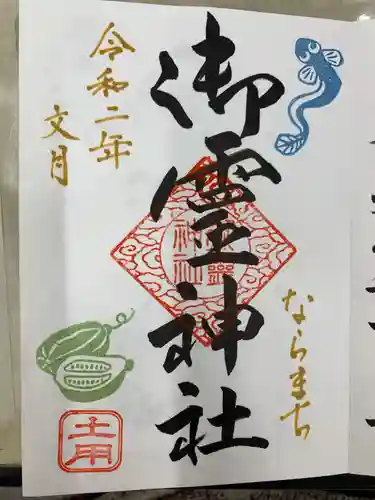 御霊神社
ならまち
令和二年
文月
土用